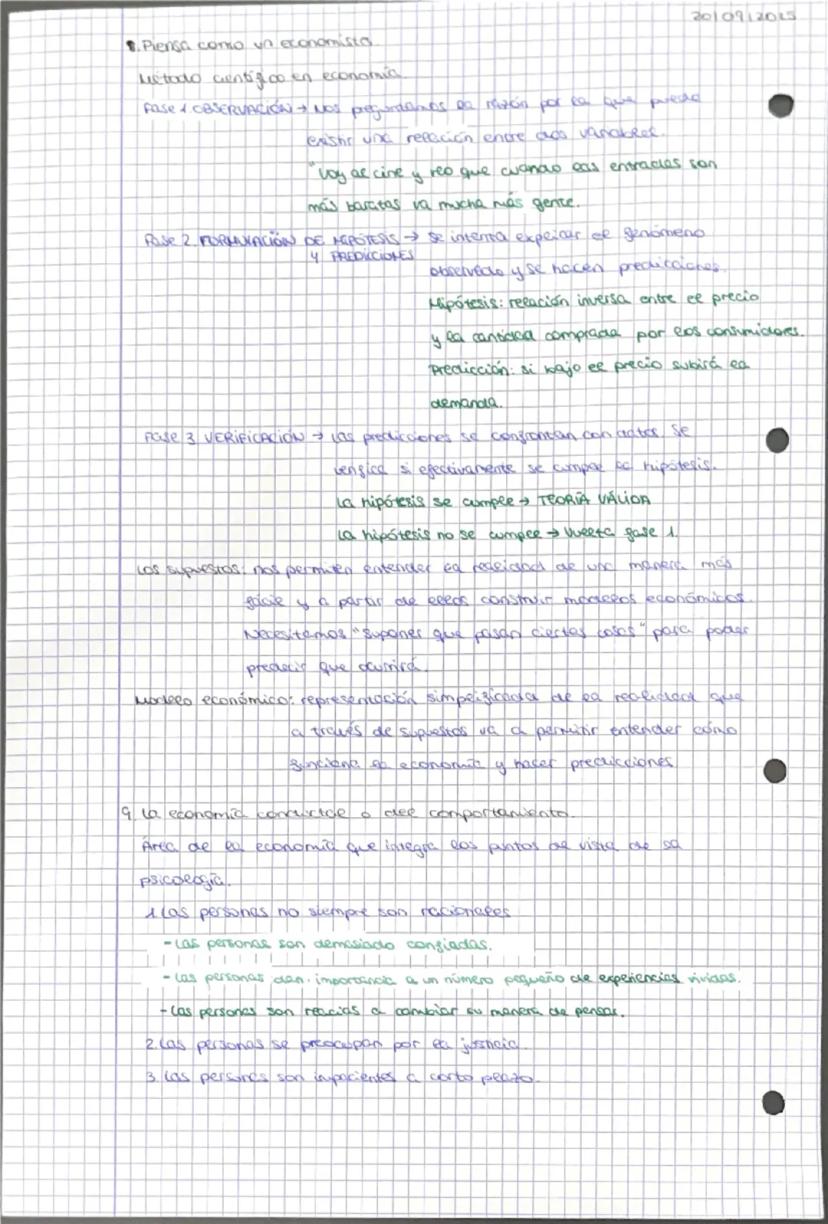 20/09/2025
8. Piensa como un economista.
Método científico en economía.
Fase 1 OBSERVACIÓN → Nos preguntamos la razón por la que puede
existir una relación entre dos variables.
"Voy al cine y veo que cuando las entradas son
más baratas va mucha más gente.
Fase 2. FORMULACIÓN DE HIPÓTESIS → se intenta explicar el fenómeno
Y PREDICCIONES
observado y se hacen predicciones.
Hipótesis: relación inversa entre el precio
y la cantidad comprada por los consumidores.
Predicción: si bajo el precio subirá la
demanda.
Fase 3 VERIFICACIÓN → Las predicciones se confrontan con datos. Se
verifica si efectivamente se cumple la hipótesis.
La hipótesis se cumple → TEORÍA VÁLIDA
La hipótesis no se cumple → Vuelta fase 1.
Los supuestos: nos permiten entender la realidad de una manera más
fácil y a partir de ellos construir modelos económicos.
Necesitamos "suponer que pasan ciertas cosas" para poder
predecir que ocurrirá.
Modelo económico: representación simplificada de la realidad que
a través de supuestos va a permitir entender cómo
funciona la economía y hacer predicciones
9. La economía conductual o del comportamiento.
Área de la economía que integra los puntos de vista de la
psicología.
1. Las personas no siempre son racionales
- Las personas son demasiado confiadas.
- Las personas dan importancia a un número pequeño de experiencias vividas.
- Las personas son reacias a cambiar su manera de pensar.
2. Las personas se preocupan por la justicia.
3. Las personas son impacientes a corto plazo.